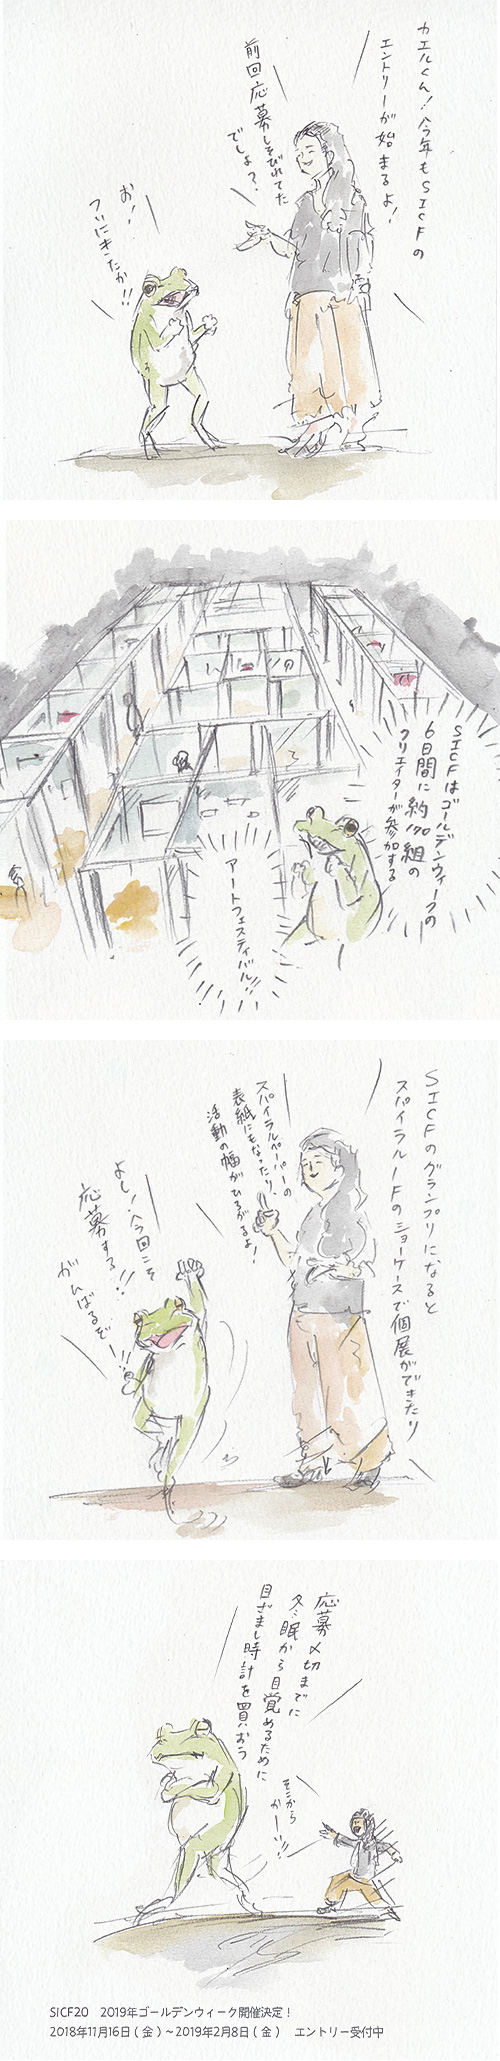 カエルくん！今年もSICFの
エントリーが始まるよ！
前回応募しそびれてた
でしょ？
お！
ついにきたか!!
SICFはゴールデンウィークの
6日間に約170組の
クリエイターが参加する
アートフェスティバル!!
SICFのグランプリになると
スパイラル1Fのショーケースで個展ができたり
スパイラルペーパーの
表紙にもなったり、
活動の幅がひろがるよ！
よし！今回こそ
応募する!!
がんばるぞー!!
応募〆切までに
冬眠から目覚めるために
目ざまし時計を買おう
そこから
かーい!!
SICF20　2019年ゴールデンウィーク開催決定！
2018年11月16日(金)～2019年2月8日(金)　エントリー受付中